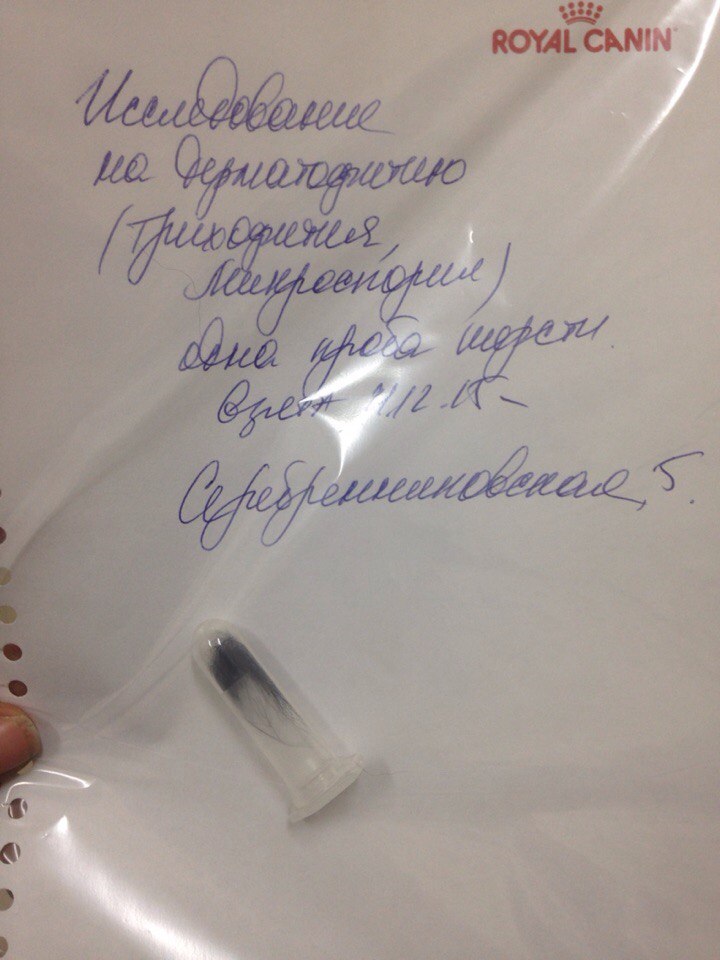 ROYAL CANIN
Исследование
на дерматофитию
(трихофития,
микроспория)
одна проба шерсти.
Взята 11.12.15-
Серебренниковская, 5.